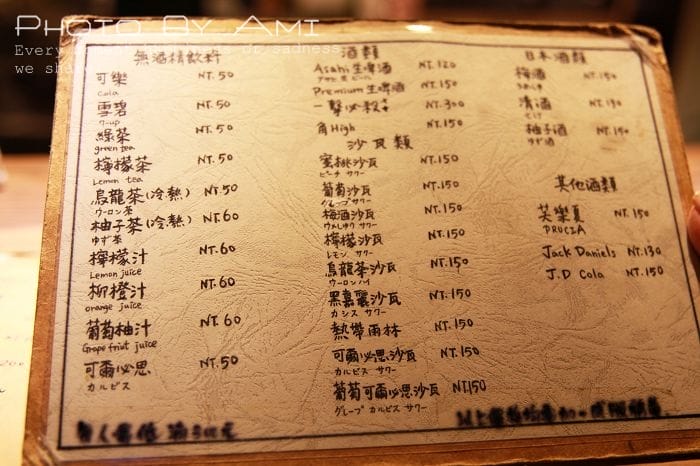 PHOTO BY AMI
無酒精飲料
可樂 NT.50
Cola
雪碧 NT.50
7-up
綠茶 NT.50
green tea
檸檬茶 NT.50
Lemon tea
烏龍茶(冷.熱) NT.50
ウーロン茶
柚子茶(冷.熱) NT.60
ゆず茶
檸檬汁 NT.60
Lemon juice
柳橙汁 NT.60
orange juice
葡萄柚汁 NT.60
Grape friut juice
可爾必思 NT.50
カルピス
酒類
Asahi 生啤酒 NT.120
アサヒ 生ビール
Premium 生啤酒 NT.150
一擊必殺 NT.300
角High NT.150
沙瓦類
蜜桃沙瓦 NT.150
ピーチ サワー
葡萄沙瓦 NT.150
グレープサワー
梅酒沙瓦 NT.150
ウメしゅサワー
檸檬沙瓦 NT.150
レモン サワー
烏龍茶沙瓦 NT.150
ウーロンハイ
黑嘉麗沙瓦 NT.150
カシス サワー
熱帶雨林 NT.150
可爾必思沙瓦 NT.150
カルピス サワー
葡萄可爾必思沙瓦 NT.150
グレープ カルピス サワー
日本酒類
梅酒 NT.150
うめしゅ
清酒 NT.130
さけ
柚子酒 NT.150
ゆず酒
其他酒類
芙樂夏 NT.150
PRUCIA
Jack Daniels NT.130
J.D Cola NT.150